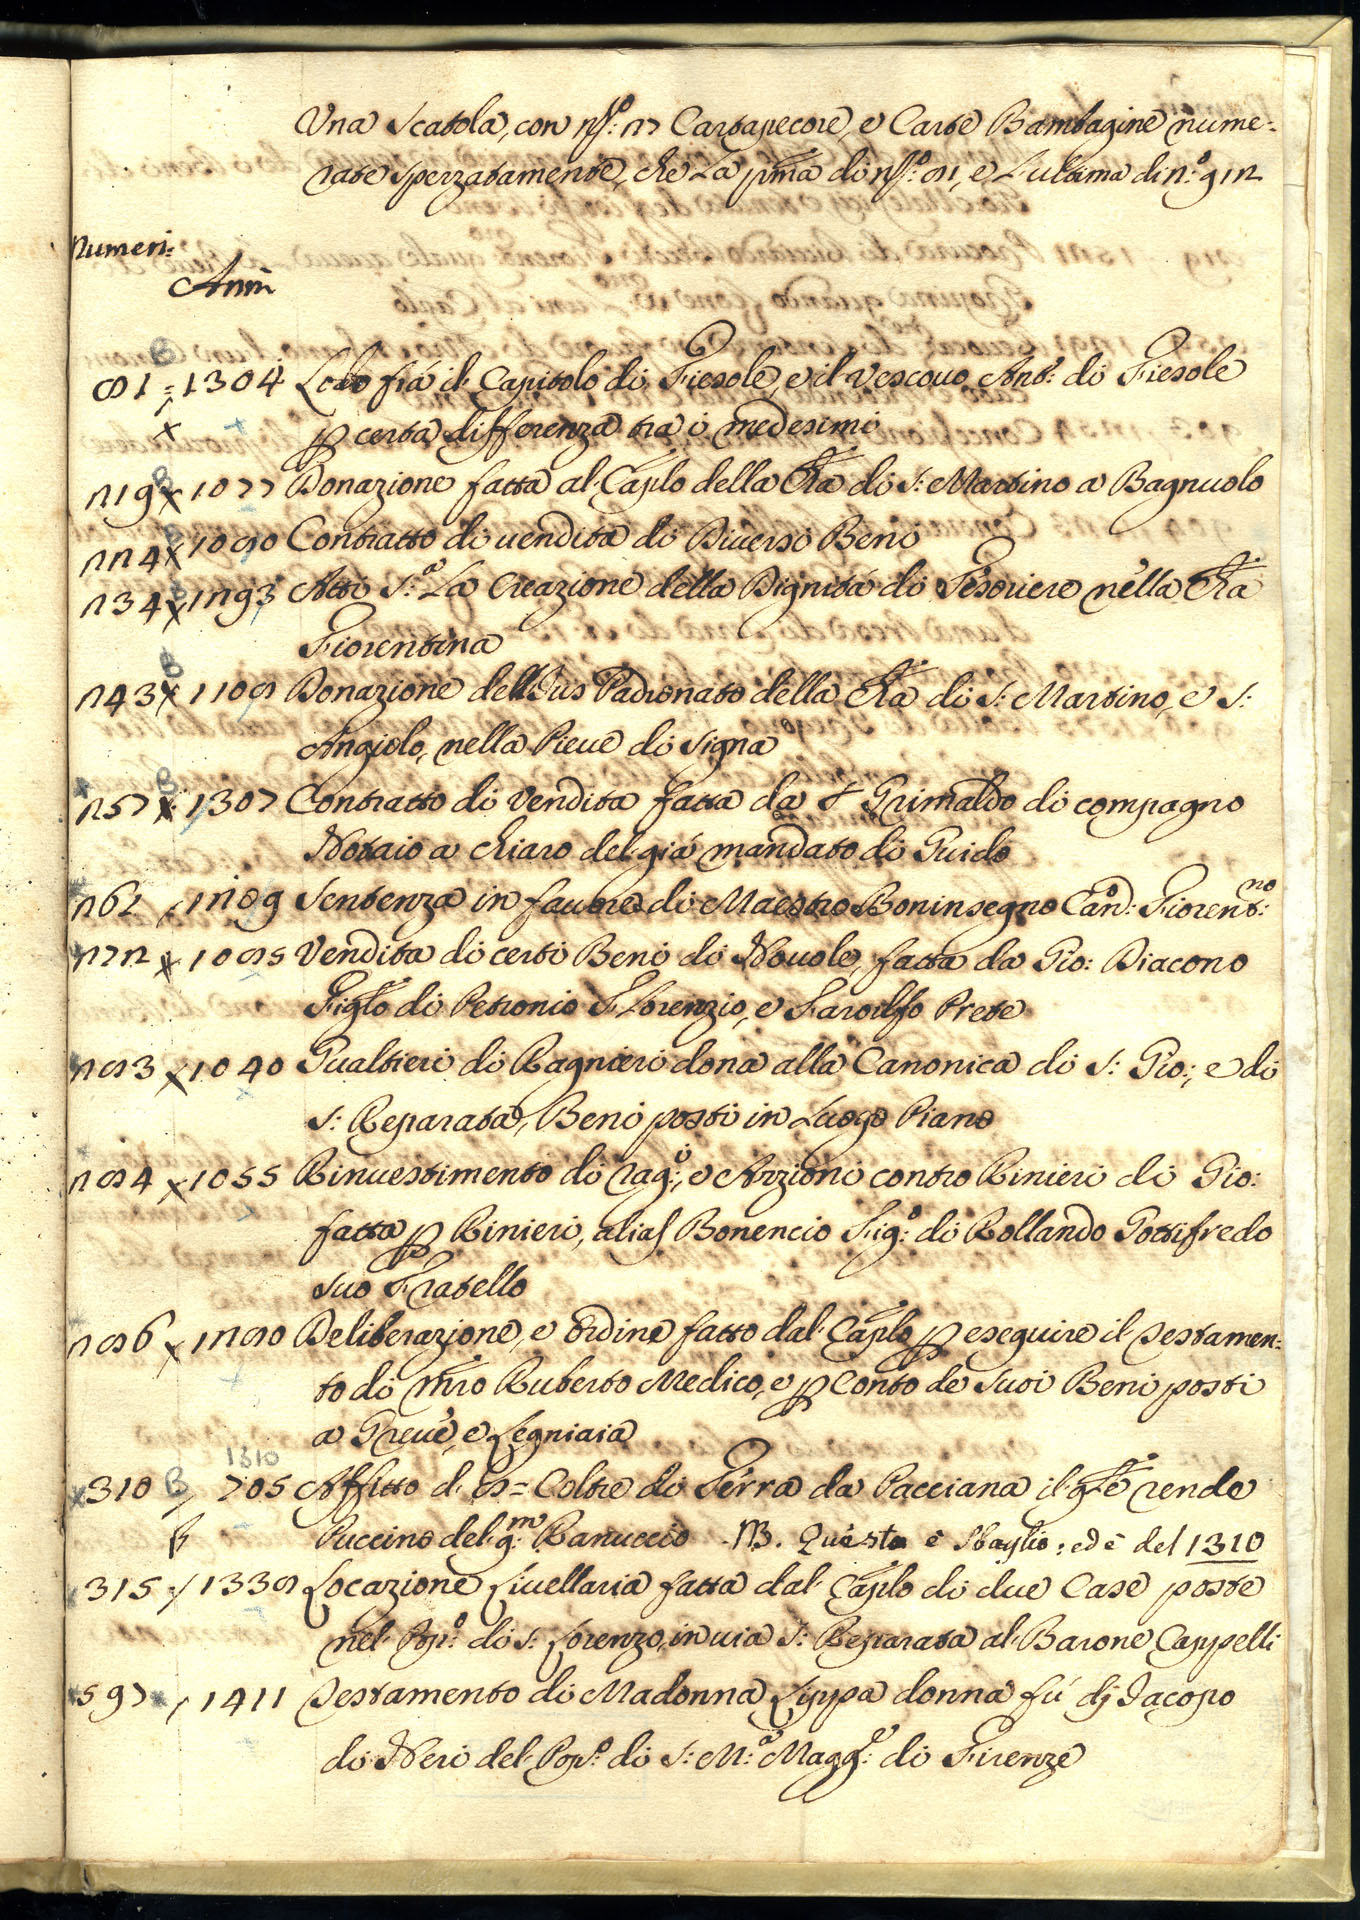 Una Scatola, con n.º: 27 Cartapecore, e Carte Bambagine nume-
rate sperzatamente, che La pma di n.º 81, e L'ultima di n.º 912
Numeri:
Anni
81 = 1304 Lodo fra il Capitolo di Fiesole, e il Vescouo Ant: di Fiesole
p certa differenza tra i medesimi
219 x 1077 Donazione fatta al Caplo della Cħa di S: Martino a Bagnuolo
224 x 1080 Contratto di uendita di Diuersi Beni
234 x 1293 Atti S:ª La Creazione della Dignità di Tesoriere nella Cħa
Fiorentina
243 x 1108 Donazione dell'Jus Padronato della Cħa di S: Martino, e S:
Angiolo, nella Pieue di Signa
257 x 1307 Contratto di Vendita fatta da Grimaldo di compagno
Notaio a Chiaro del già mandato di Guido
262 1209 Sentenza in fauore di Maestro Boninsegno Can: Fiorent:no
272 x 1085 Vendita di certi Beni di Nouole, fatta da Gio: Diacono
Figlo di Petronio S. Lorenzio, e Farolfo Prete
283 x 1040 Gualtieri di Ragnieri dona alla Canonica di S: Gio:, e di
S: Reparata, Beni posti in Luogo Piano
284 x 1055 Rinuestimento di rag:, e Azzioni contro Rinieri di Gio:
fatta p Rinieri, alias Bonencio Fig:º di Rollando Gottifredo
suo Fratello
286 x 1280 Deliberazione, e ordine fatto dal Caplo p eseguire il Testamen-
to di Mro Ruberto Medico, e p Conto de suoi Beni posti
a Greue, e Legniaia
1310
310 B 705 Affitto d. 8= Coltre di Terra da Pacciana il qle rende
B Puccino del q:m Ranuccio NB. Questa è sbaglio: ed è del 1310
315 1338 Locazione Liuellaria fatta dal Caplo di due Case poste
nel Pop:º di S: Lorenzo, in uia S: Reparata al Barone Cappelli
597 1411 Testamento di Madonna Lippa donna fù dj Jacopo
di Neri del Pop:º di S: M:ª Magg:e di Firenze